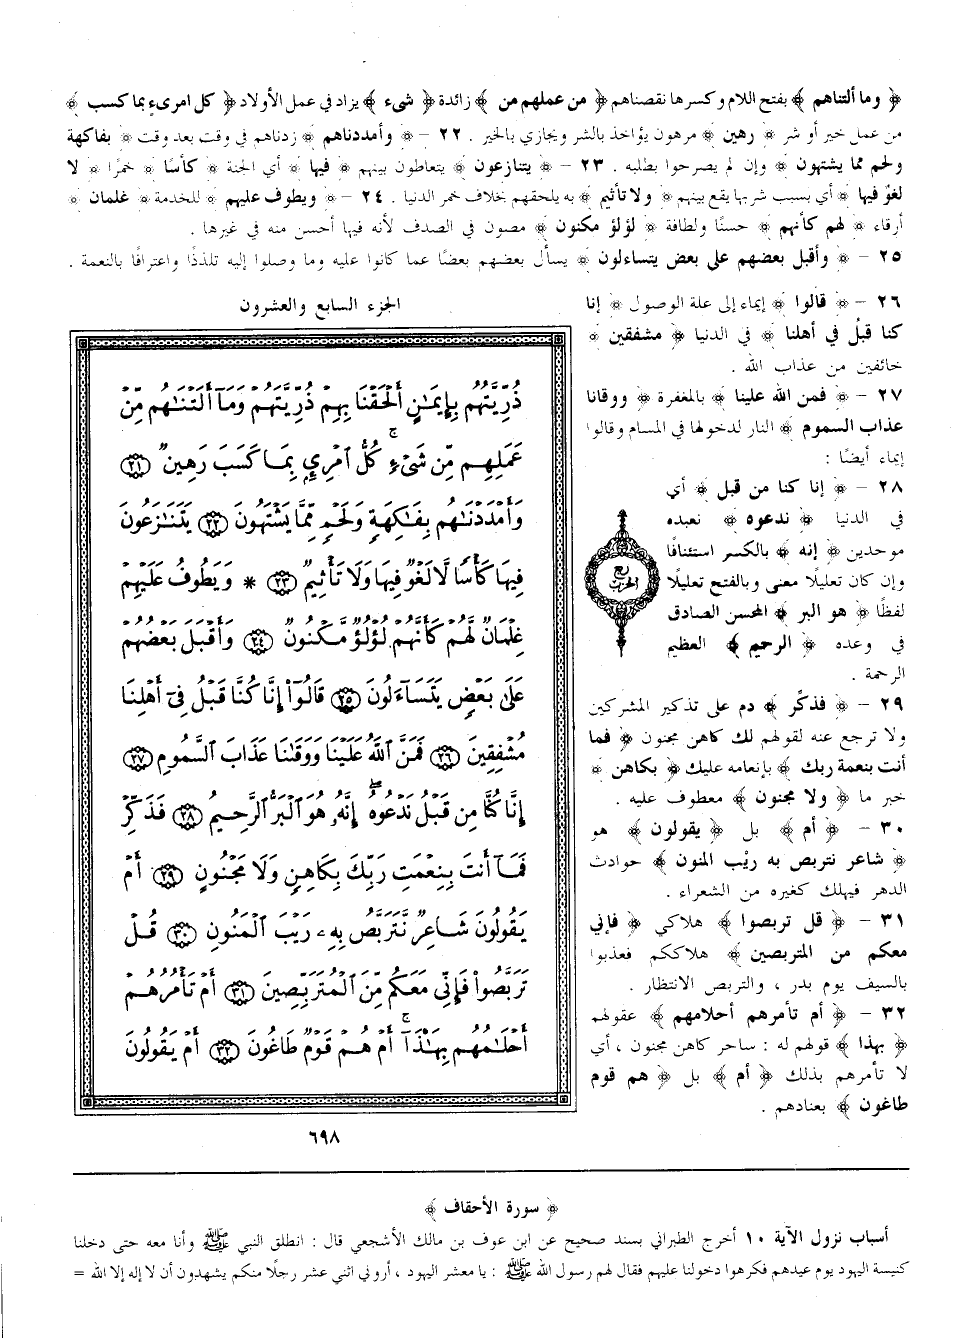 ﴿ وما ألتناهم ﴾ بفتح اللام وكسرها نقصناهم ﴿ من عملهم من ﴾ زائدة ﴿ شيء ﴾ يزاد في عمل الأولاد ﴿ كل امرىء بما كسب ﴾
من عمل خير أو شر ﴿ رهين ﴾ مرهون يؤاخذ بالشر ويجازي بالخير . ٢٢ – ﴿ وأمددناهم ﴾ زدناهم في وقت بعد وقت ﴿ بفاكهة
ولحم مما يشتهون ﴾ وإن لم يصرحوا بطلبه . ٢٣ – ﴿ يتنازعون ﴾ يتعاطون بينهم ﴿ فيها ﴾ أي الجنة ﴿ كأسًا ﴾ خمرًا ﴿ لا
لغوٌ فيها ﴾ أي بسبب شربها يقع بينهم ﴿ ولا تأثيم ﴾ به يلحقهم بخلاف خمر الدنيا . ٢٤ – ﴿ ويطوف عليهم ﴾ للخدمة ﴿ غلمان ﴾
أرقاء ﴿ لهم كأنهم ﴾ حسنًا ولطافة ﴿ لؤلؤ مكنون ﴾ مصون في الصدف لأنه فيها أحسن منه في غيرها .
٢٥ – ﴿ وأقبل بعضهم على بعض يتساءلون ﴾ يسأل بعضهم بعضًا عما كانوا عليه وما وصلوا إليه تلذذًا واعترافًا بالنعمة .
٢٦ – ﴿ قالوا ﴾ إيماء إلى علة الوصول ﴿ إنا
كنا قبلُ في أهلنا ﴾ في الدنيا ﴿ مشفقين ﴾
خائفين من عذاب الله .
٢٧ – ﴿ فمن الله علينا ﴾ بالمغفرة ﴿ ووقانا
عذاب السموم ﴾ النار لدخولها في المسام وقالوا
إيماء أيضًا :
٢٨ – ﴿ إنا كنا من قبل ﴾ أي
في الدنيا ﴿ ندعوه ﴾ نعبده
موحدين ﴿ إنه ﴾ بالكسر استئنافًا
وإن كان تعليلًا معنى وبالفتح تعليلًا
لفظًا ﴿ هو البر ﴾ المحسن الصادق
في وعده ﴿ الرحيم ﴾ العظيم
الرحمة .
٢٩ – ﴿ فذكّر ﴾ دم على تذكير المشركين
ولا ترجع عنه لقولهم لك كاهن مجنون ﴿ فما
أنت بنعمة ربك ﴾ بإنعامه عليك ﴿ بكاهن ﴾
خبر ما ﴿ ولا مجنون ﴾ معطوف عليه .
٣٠ – ﴿ أم ﴾ بل ﴿ يقولون ﴾ هو
﴿ شاعر نتربص به ريْب المنون ﴾ حوادث
الدهر فيهلك كغيره من الشعراء .
٣١ – ﴿ قل تربصوا ﴾ هلاكي ﴿ فإني
معكم من المتربصين ﴾ هلاككم فعذبوا
بالسيف يوم بدر ، والتربص الانتظار .
٣٢ – ﴿ أم تأمرهم أحلامهم ﴾ عقولهم
﴿ بهذا ﴾ قولهم له : ساحر كاهن مجنون ، أي
لا تأمرهم بذلك ﴿ أم ﴾ بل ﴿ هم قوم
طاغون ﴾ بعنادهم .
ربع
الحزب
الجزء السابع والعشرون
ذُرِّيَّتُهُم بِإِيمَٰنٍ أَلْحَقْنَا بِهِمْ ذُرِّيَّتَهُمْ وَمَآ أَلَتْنَٰهُم مِّنْ
عَمَلِهِم مِّن شَىْءٍ ۚ كُلُّ ٱمْرِئٍۭ بِمَا كَسَبَ رَهِينٌ ﴿٢١﴾
وَأَمْدَدْنَٰهُم بِفَٰكِهَةٍ وَلَحْمٍ مِّمَّا يَشْتَهُونَ ﴿٢٢﴾ يَتَنَٰزَعُونَ
فِيهَا كَأْسًا لَّا لَغْوٌ فِيهَا وَلَا تَأْثِيمٌ ﴿٢٣﴾ * وَيَطُوفُ عَلَيْهِمْ
غِلْمَانٌ لَّهُمْ كَأَنَّهُمْ لُؤْلُؤٌ مَّكْنُونٌ ﴿٢٤﴾ وَأَقْبَلَ بَعْضُهُمْ
عَلَىٰ بَعْضٍ يَتَسَآءَلُونَ ﴿٢٥﴾ قَالُوٓا۟ إِنَّا كُنَّا قَبْلُ فِىٓ أَهْلِنَا
مُشْفِقِينَ ﴿٢٦﴾ فَمَنَّ ٱللَّهُ عَلَيْنَا وَوَقَىٰنَا عَذَابَ ٱلسَّمُومِ ﴿٢٧﴾
إِنَّا كُنَّا مِن قَبْلُ نَدْعُوهُ ۖ إِنَّهُۥ هُوَ ٱلْبَرُّ ٱلرَّحِيمُ ﴿٢٨﴾ فَذَكِّرْ
فَمَآ أَنتَ بِنِعْمَتِ رَبِّكَ بِكَاهِنٍ وَلَا مَجْنُونٍ ﴿٢٩﴾ أَمْ
يَقُولُونَ شَاعِرٌ نَّتَرَبَّصُ بِهِۦ رَيْبَ ٱلْمَنُونِ ﴿٣٠﴾ قُلْ
تَرَبَّصُوا۟ فَإِنِّى مَعَكُم مِّنَ ٱلْمُتَرَبِّصِينَ ﴿٣١﴾ أَمْ تَأْمُرُهُمْ
أَحْلَٰمُهُم بِهَٰذَآ ۚ أَمْ هُمْ قَوْمٌ طَاغُونَ ﴿٣٢﴾ أَمْ يَقُولُونَ
٦٩٨
﴿ سورة الأحقاف ﴾
أسباب نزول الآية ١٠ أخرج الطبراني بسند صحيح عن ابن عوف بن مالك الأشجعي قال : انطلق النبي ﷺ وأنا معه حتى دخلنا
كنيسة اليهود يوم عيدهم فكرهوا دخولنا عليهم فقال لهم رسول الله ﷺ : يا معشر اليهود ، أروني اثني عشر رجلًا منكم يشهدون أن لا إله إلا الله =